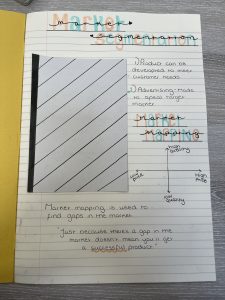 Market
Segmentation
1) Product can be
developed to meet
customer needs.
2) Advertising made
to specific target
market
Market
Mapping
high
quality
low
price
High
Price
low
quality
Market mapping is used to
find gaps in the market
"Just because there's a gap in the
market doesn't mean you'll get
a successful product"